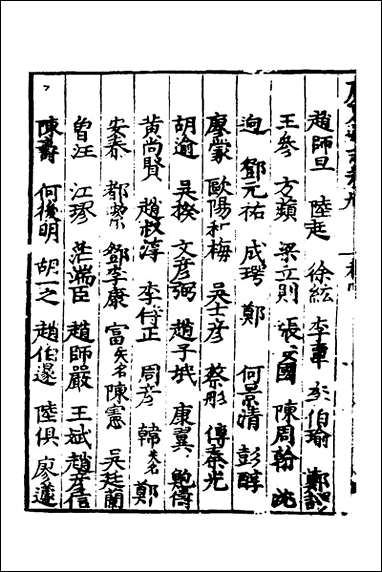 趙師旦 陸起 徐紘 李車 彭伯瑜 鄭
王參 方蘋 梁立則 張國 陳周翰 沈
迥 鄧元祐 成璍 鄭 何景清 彭醇
廖蒙 歐陽和梅 吳士彥 蔡彤 傅秦光
胡逾 吳揆 文彥弼 趙子珉 康翼 鮑傳
黃尚賢 趙敍淳 李侍正 周彥 韓失名 鄭
安春 都絜 鄧李康 富失名 陳憲 吳廷蘭
曾汪 江璆 茫湍臣 趙師嚴 王斌 趙彥信
陳壽 何後明 胡一之 趙伯遂 陸俱 廖蘧